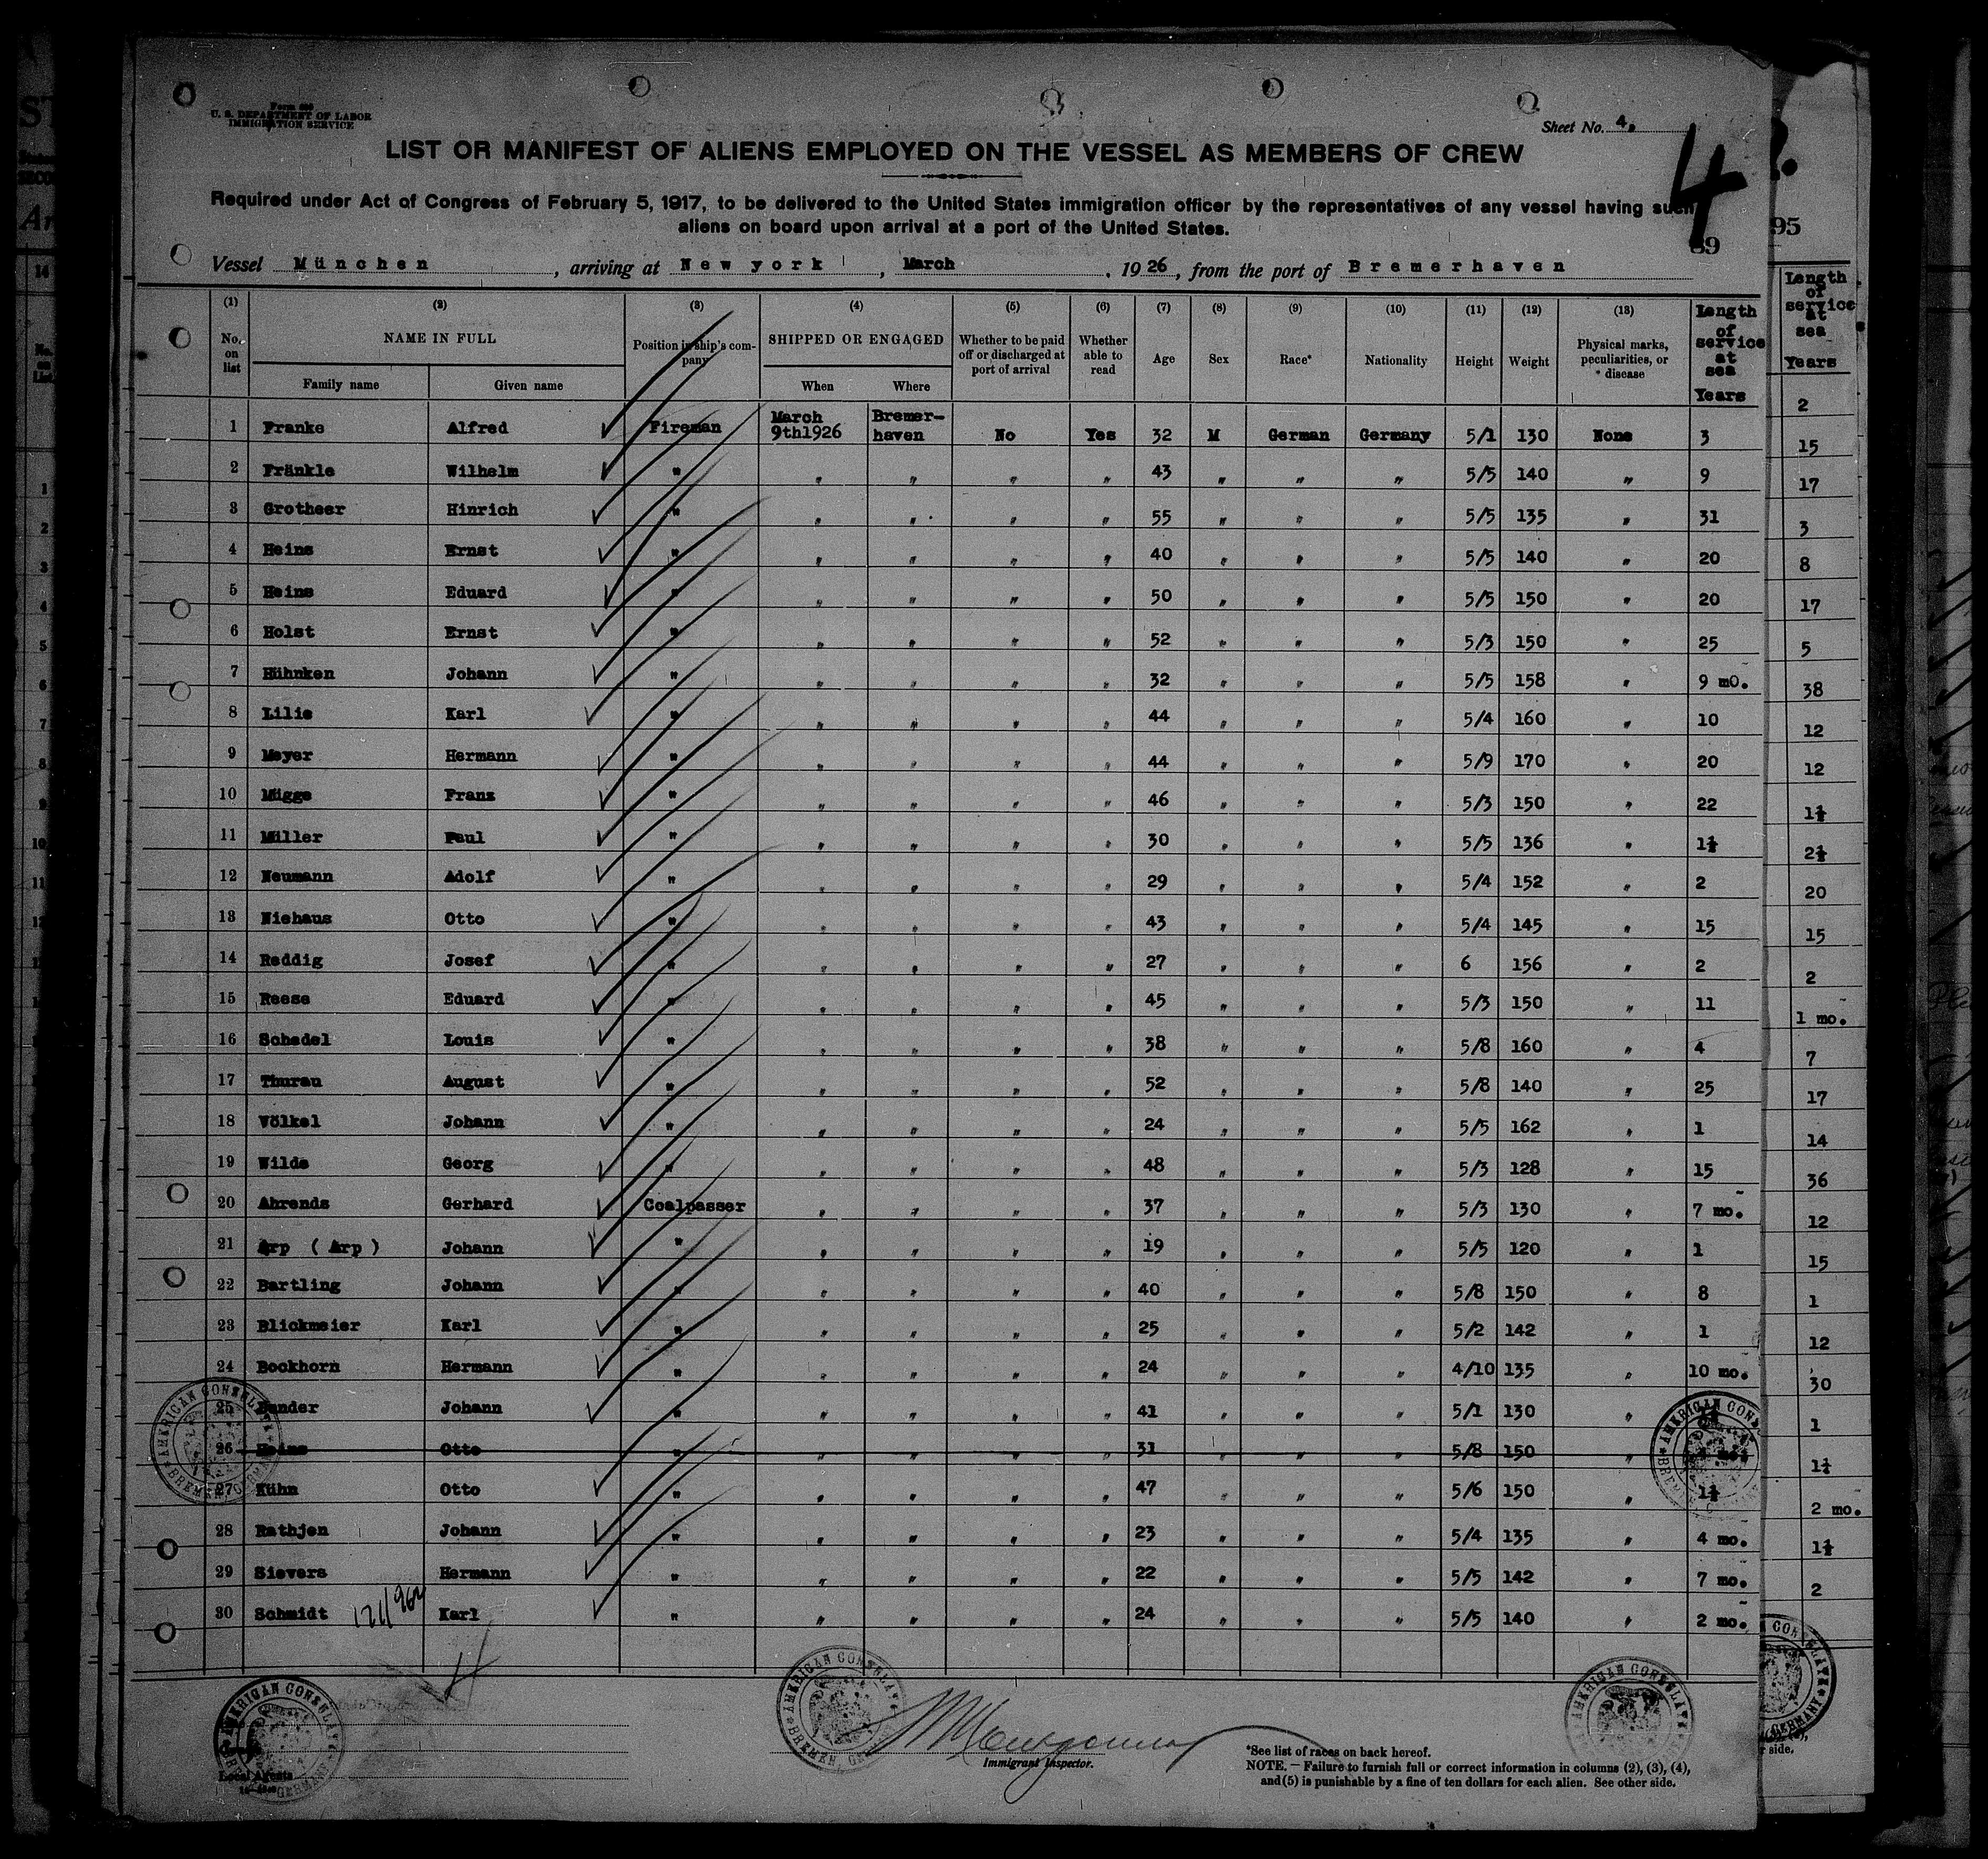 Form 689
U. S. DEPARTMENT OF LABOR
IMMIGRATION SERVICE
Sheet No. 4.
4
LIST OR MANIFEST OF ALIENS EMPLOYED ON THE VESSEL AS MEMBERS OF CREW
Required under Act of Congress of February 5, 1917, to be delivered to the United States immigration officer by the representatives of any vessel having such
aliens on board upon arrival at a port of the United States.
89
Vessel München, arriving at New york, March, 1926, from the port of Bremerhaven
(1) No. on list (2) NAME IN FULL Family name Given name (3) Position in ship's company (4) SHIPPED OR ENGAGED When Where (5) Whether to be paid off or discharged at port of arrival (6) Whether able to read (7) Age (8) Sex (9) Race* (10) Nationality (11) Height (12) Weight (13) Physical marks, peculiarities, or disease Length of service at sea Years
1 Franke Alfred Fireman March 9th1926 Bremer-haven No Yes 32 M German Germany 5/1 130 None 3
2 Fränkle Wilhelm " " " " " 43 " " " 5/5 140 " 9
3 Grotheer Hinrich " " " " " 55 " " " 5/5 135 " 31
4 Heins Ernst " " " " " 40 " " " 5/5 140 " 20
5 Heins Eduard " " " " " 50 " " " 5/5 150 " 20
6 Holst Ernst " " " " " 52 " " " 5/3 150 " 25
7 Hühnken Johann " " " " " 32 " " " 5/5 158 " 9 mo.
8 Lilie Karl " " " " " 44 " " " 5/4 160 " 10
9 Meyer Hermann " " " " " 44 " " " 5/9 170 " 20
10 Mügge Franz " " " " " 46 " " " 5/3 150 " 22
11 Müller Paul " " " " " 30 " " " 5/5 136 " 1½
12 Neumann Adolf " " " " " 29 " " " 5/4 152 " 2
13 Niehaus Otto " " " " " 43 " " " 5/4 145 " 15
14 Reddig Josef " " " " " 27 " " " 6 156 " 2
15 Reese Eduard " " " " " 45 " " " 5/3 150 " 11
16 Schedel Louis " " " " " 38 " " " 5/8 160 " 4
17 Thurau August " " " " " 52 " " " 5/8 140 " 25
18 Völkel Johann " " " " " 24 " " " 5/5 162 " 1
19 Wilde Georg " " " " " 48 " " " 5/3 128 " 15
20 Ahrends Gerhard Coalpasser " " " " 37 " " " 5/3 130 " 7 mo.
21 Arp ( Arp ) Johann " " " " " 19 " " " 5/5 120 " 1
22 Bartling Johann " " " " " 40 " " " 5/8 150 " 8
23 Blickmeier Karl " " " " " 25 " " " 5/2 142 " 1
24 Bockhorn Hermann " " " " " 24 " " " 4/10 135 " 10 mo.
25 Bunder Johann " " " " " 41 " " " 5/1 130 "
26 Heins Otto " " " " " 31 " " " 5/8 150 "
27 Kühn Otto " " " " " 47 " " " 5/6 150 " 1½
28 Rathjen Johann " " " " " 23 " " " 5/4 135 " 4 mo.
29 Sievers Hermann " " " " " 22 " " " 5/5 142 " 7 mo.
30 Schmidt Karl " " " " " 24 " " " 5/5 140 " 2 mo.
AMERICAN CONSULATE
BREMEN, GERMANY
Local Agents
Immigrant Inspector.
*See list of races on back hereof.
NOTE. — Failure to furnish full or correct information in columns (2), (3), (4),
and (5) is punishable by a fine of ten dollars for each alien. See other side.
95
Length
of
service
at
sea
Years
2
15
17
3
8
17
5
38
12
12
1½
2½
20
15
2
1 mo.
7
17
14
36
12
15
1
12
30
1
1½
2 mo.
1½
2
r side.